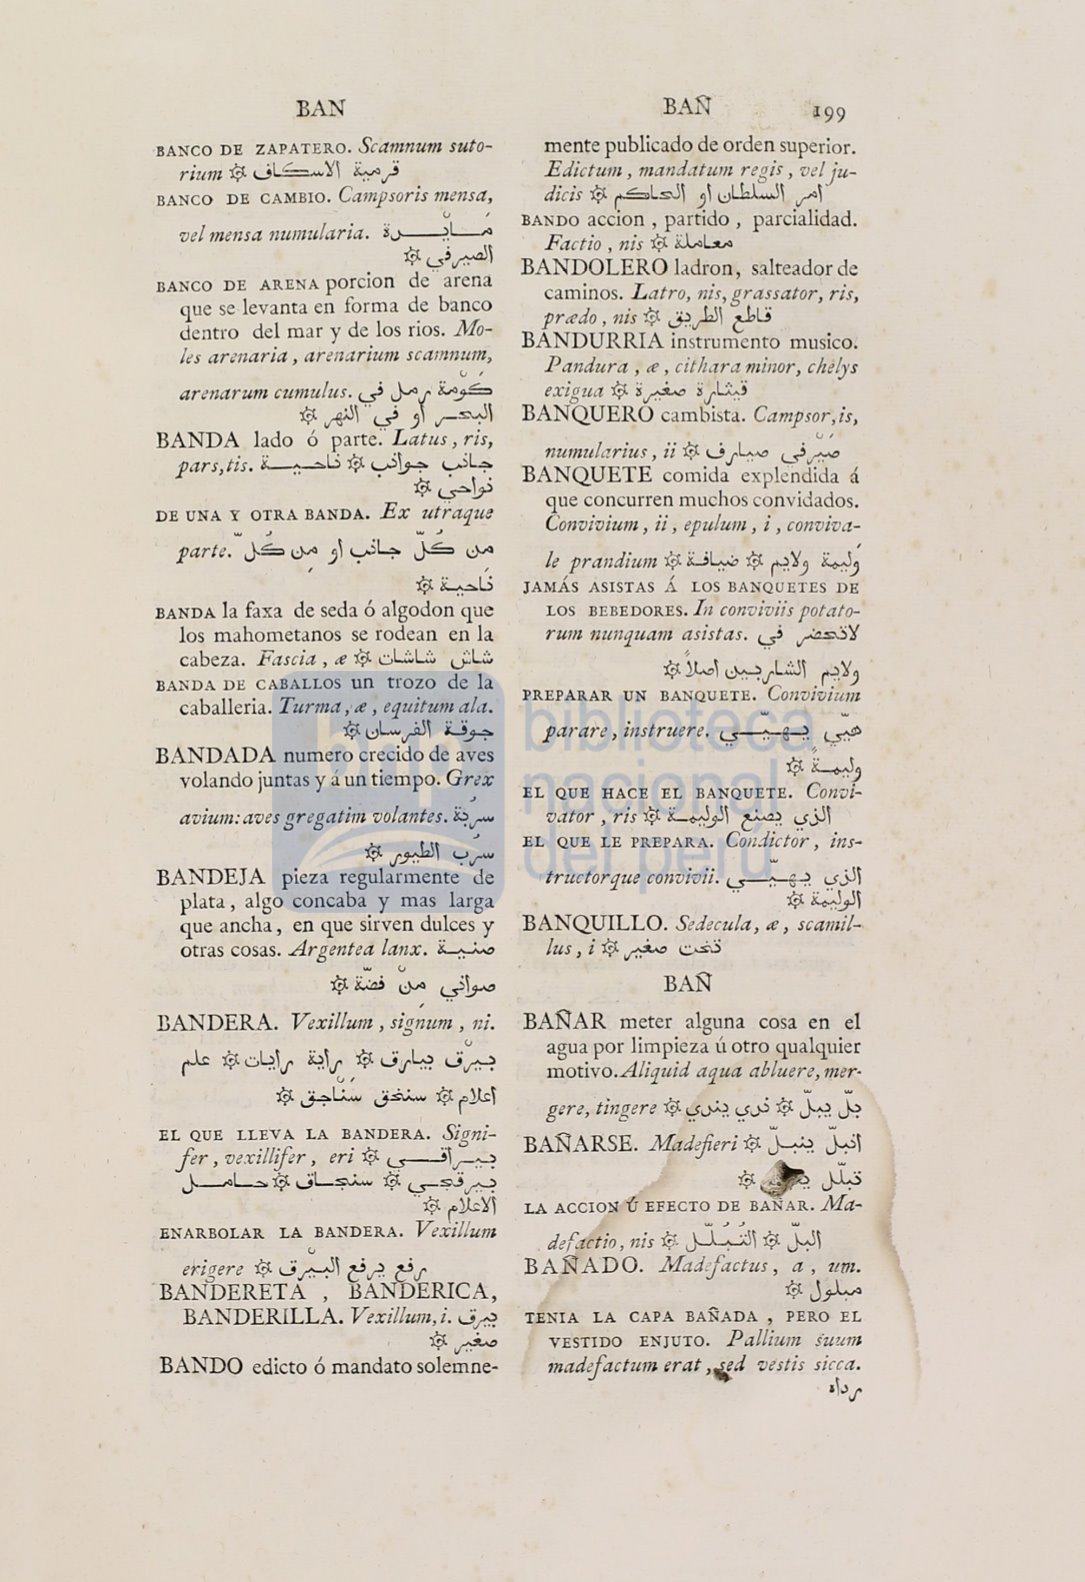 BAN
BANCO DE ZAPATERO. Scamnum suto-
rium ۞ قرمية الاسكاف
BANCO DE CAMBIO. Campsoris mensa,
vel mensa numularia. مَايْرة
الصيرفي ۞
BANCO DE ARENA porcion de arena
que se levanta en forma de banco
dentro del mar y de los rios. Mo-
les arenaria, arenarium scamnum,
arenarum cumulus. كَوْمة رمل في
البحر أو في النهر ۞
BANDA lado ó parte. Latus, ris,
pars, tis. جانب جوانب ۞ ناحية
نواحي ۞
DE UNA Y OTRA BANDA. Ex utraque
parte. مِن كُلّ جانب او مِن كُلّ
ناحية ۞
BANDA la faxa de seda ó algodon que
los mahometanos se rodean en la
cabeza. Fascia, æ ۞ شاش شاشات
BANDA DE CABALLOS un trozo de la
caballeria. Turma, æ, equitum ala.
جوقة الفرسان ۞
BANDADA numero crecido de aves
volando juntas y á un tiempo. Grex
avium: aves gregatim volantes. سرُبة
سرُب الطيور ۞
BANDEJA pieza regularmente de
plata, algo concaba y mas larga
que ancha, en que sirven dulces y
otras cosas. Argentea lanx. صنية
صواني مِنْ فضّة ۞
BANDERA. Vexillum, signum, ni.
بيْرق بيارق ۞ راية رايات ۞ علم
أعلام ۞ سنجق سَنْاجق ۞
EL QUE LLEVA LA BANDERA. Signi-
fer, vexillifer, eri ۞ بيراقي
بيرقجي ۞ سنجاق ۞ حامل
الاعلام ۞
ENARBOLAR LA BANDERA. Vexillum
erigere ۞ رفع يرفع البيْرق
BANDERETA, BANDERICA,
BANDERILLA. Vexillum, i. بيرق
صغير ۞
BANDO edicto ó mandato solemne-
BAÑ 199
mente publicado de orden superior.
Edictum, mandatum regis, vel ju-
dicis ۞ امر السلطان او الحاكم
BANDO accion, partido, parcialidad.
Factio, nis ۞ معاملة
BANDOLERO ladron, salteador de
caminos. Latro, nis, grassator, ris,
prædo, nis ۞ قاطع الطريق
BANDURRIA instrumento musico.
Pandura, æ, cithara minor, chelys
exigua ۞ قيثارة صغيرة
BANQUERO cambista. Campsor, is,
numularius, ii ۞ صَيْرفي صيارف
BANQUETE comida explendida á
que concurren muchos convidados.
Convivium, ii, epulum, i, conviva-
le prandium ۞ وَليمة ولايم ۞ ضيافة ۞
JAMÁS ASISTAS Á LOS BANQUETES DE
LOS BEBEDORES. In conviviis potato-
rum nunquam asistas. لاتحضر في
ولايم الشاربين اصلاً ۞
PREPARAR UN BANQUETE. Convivium
parare, instruere. هيّي يهيّي
وليمةً ۞
EL QUE HACE EL BANQUETE. Convi-
vator, ris ۞ الذي يصنع الوليمة
EL QUE LE PREPARA. Condictor, ins-
tructorque convivii. الذي يهيّي
الوليمة ۞
BANQUILLO. Sedecula, æ, scamil-
lus, i ۞ تخت صغير
BAÑ
BAÑAR meter alguna cosa en el
agua por limpieza ú otro qualquier
motivo. Aliquid aqua abluere, mer-
gere, tingere ۞ بلّ يبلّ ۞ ندي يندي ۞
BAÑARSE. Madefieri ۞ انبلّ ينبلّ
تبلّل ۞
LA ACCION Ú EFECTO DE BAÑAR. Ma-
defactio, nis ۞ البلّ ۞ التبُلُّل
BAÑADO. Madefactus, a, um.
مبلول ۞
TENIA LA CAPA BAÑADA, PERO EL
VESTIDO ENJUTO. Pallium suum
madefactum erat, sed vestis sicca.
رداه
biblioteca
nacional
del perú